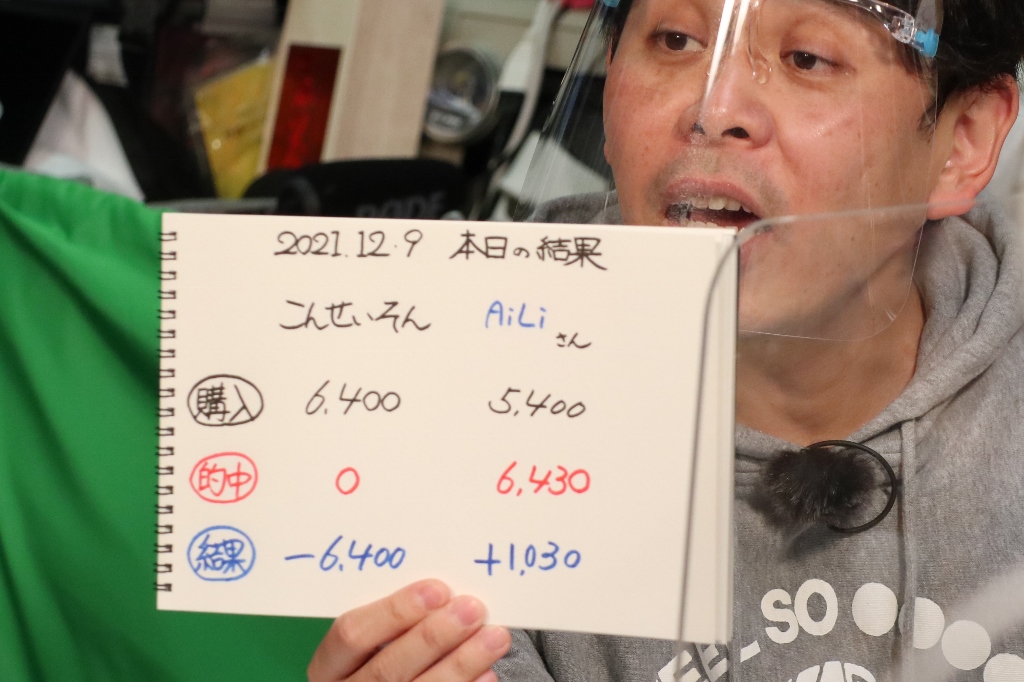 2021.12.9 本日の結果
こんせいそん AiLiさん
購入 6,400 5,400
的中 0 6,430
結果 -6,400 +1,030
-SO